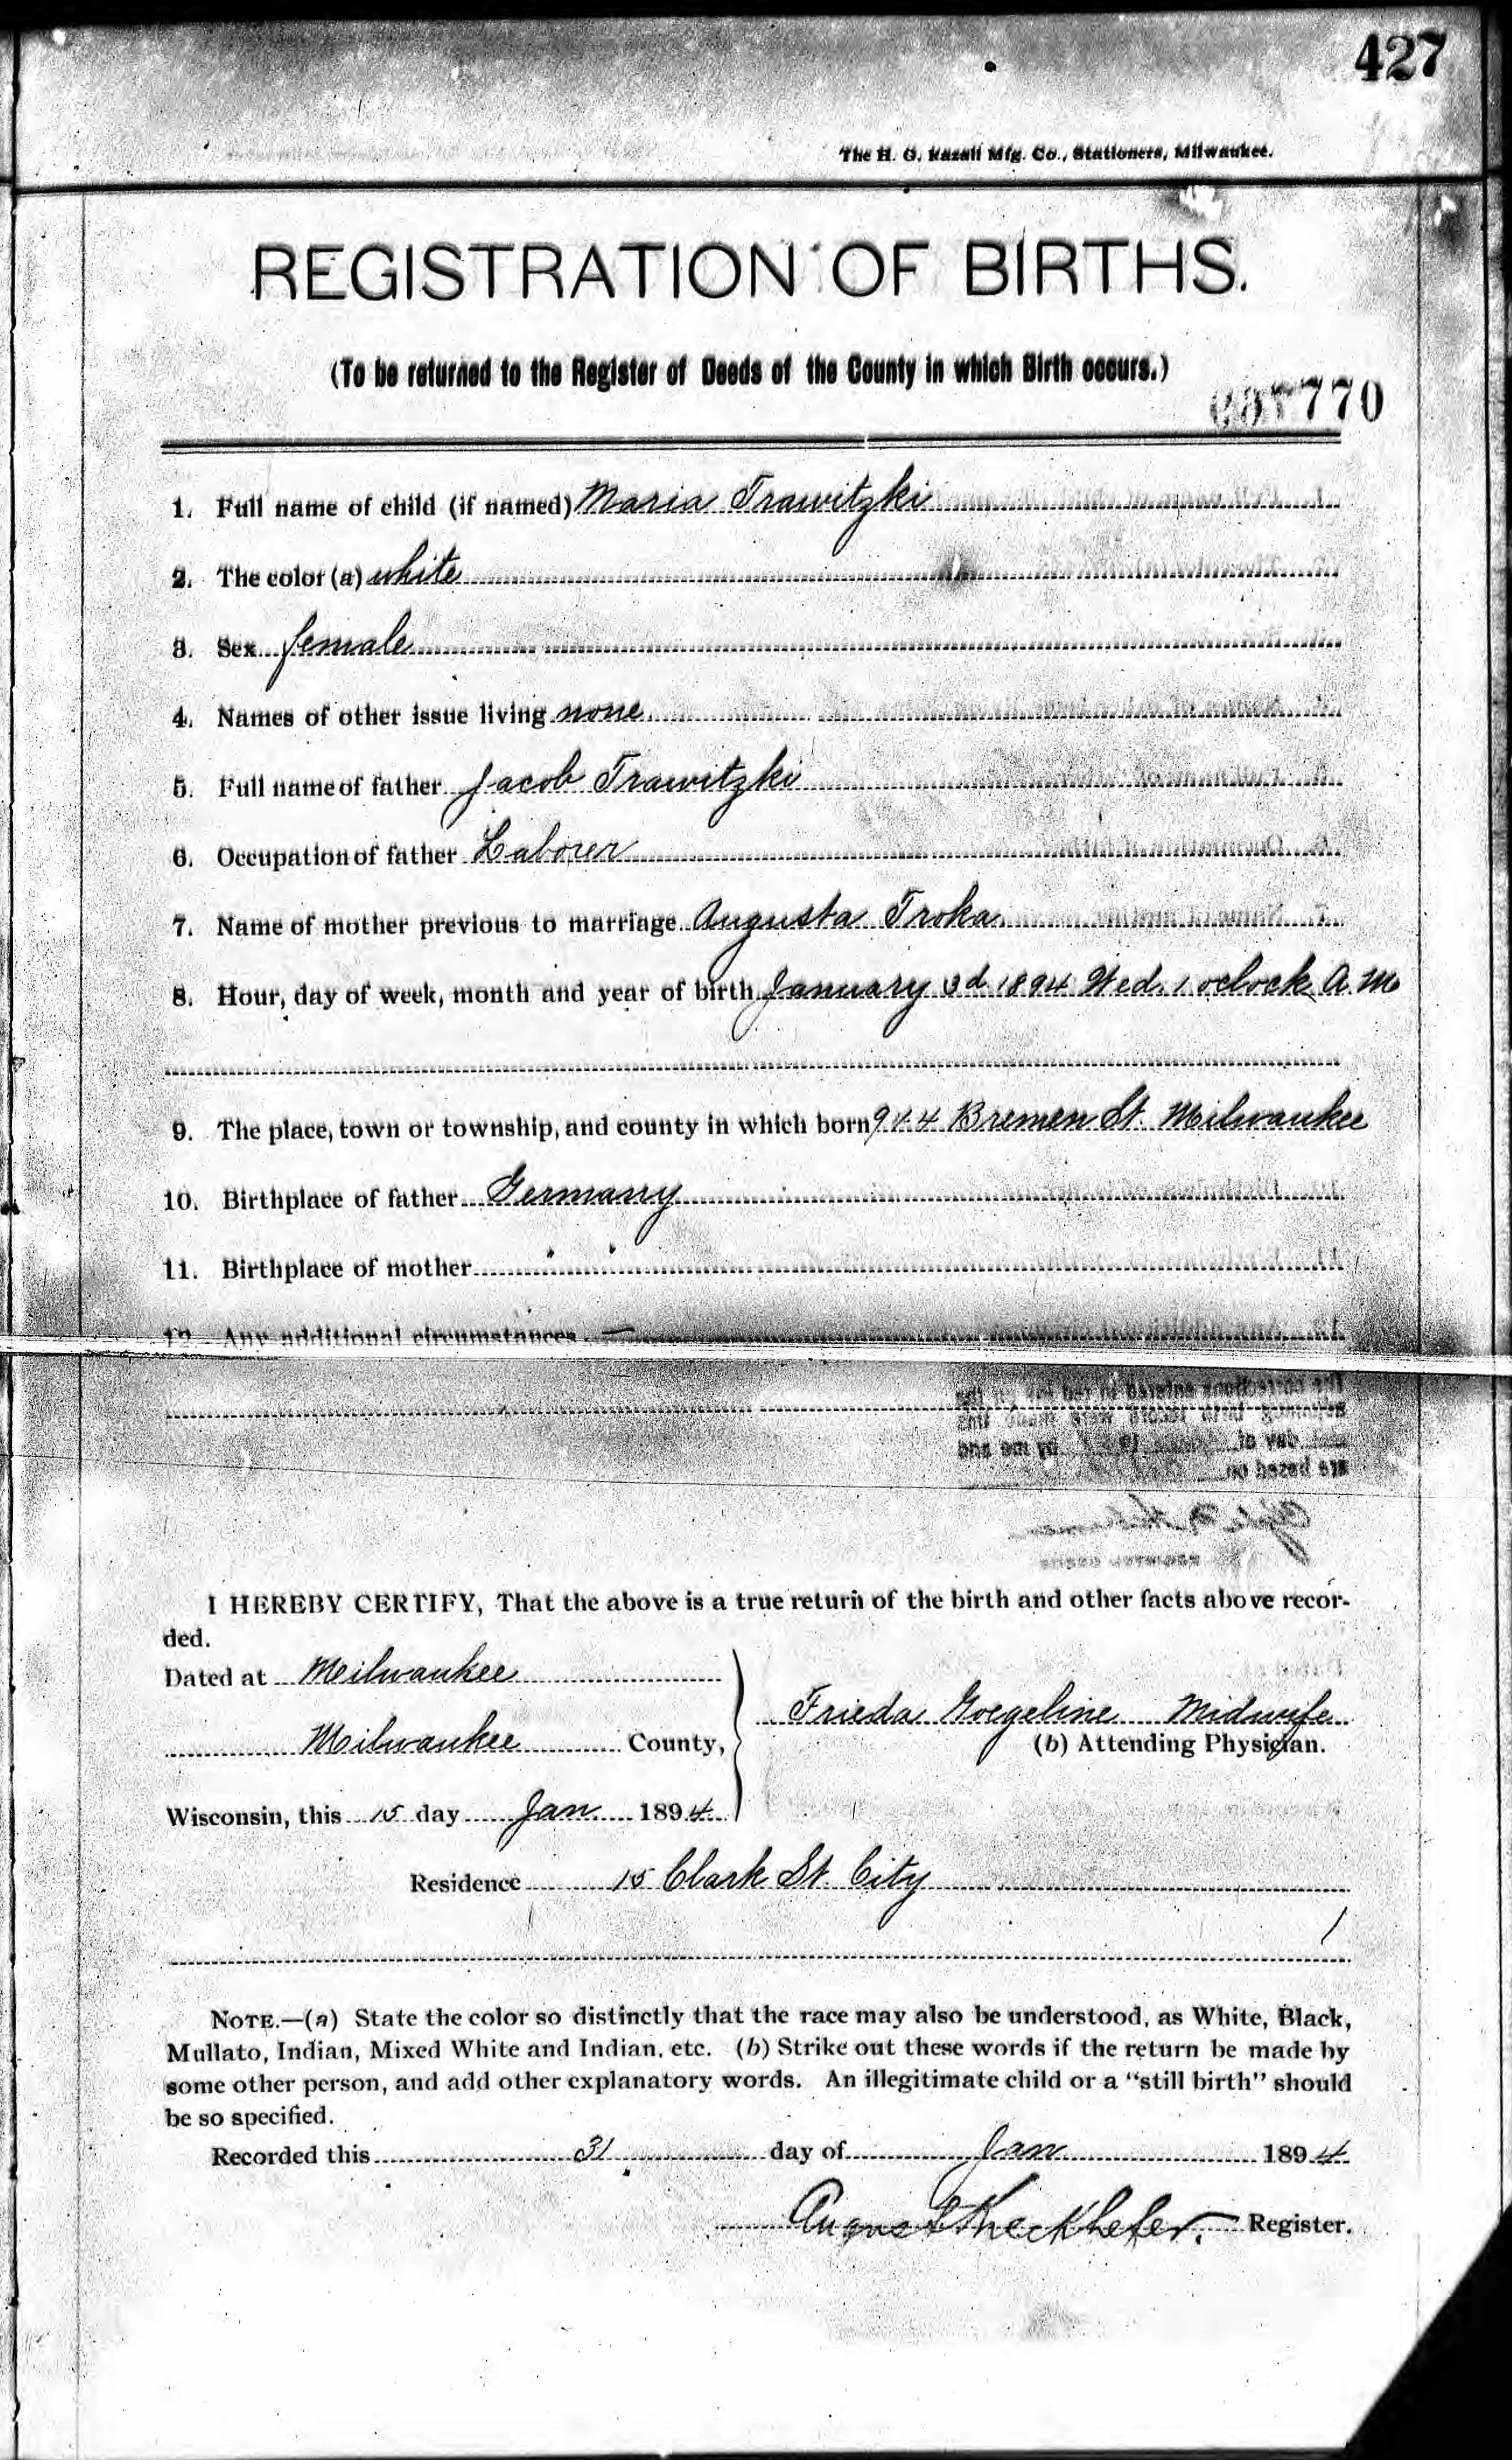 427
The H. G. Razall Mfg. Co., Stationers, Milwaukee.
REGISTRATION OF BIRTHS.
(To be returned to the Register of Deeds of the County in which Birth occurs.)
770
1. Full name of child (if named) Maria Trawitzki
2. The color (a) white
3. Sex female
4. Names of other issue living none
5. Full name of father Jacob Trawitzki
6. Occupation of father Laborer
7. Name of mother previous to marriage Augusta Troka
8. Hour, day of week, month and year of birth January 3d 1894 Wed. 1 oclock A.M
9. The place, town or township, and county in which born 944 Bremen St. Milwaukee
10. Birthplace of father Germany
11. Birthplace of mother " "
12. Any additional circumstances —
The corrections entered in red ink on the
adjoining birth record were made this
day of 19 by me and
are based on
I HEREBY CERTIFY, That the above is a true return of the birth and other facts above recor-
ded.
Dated at Milwaukee
Milwaukee County,
Frieda Goegeline Midwife
(b) Attending Physician.
Wisconsin, this 15 day Jan 1894
Residence 15 Clark St. City
NOTE.—(a) State the color so distinctly that the race may also be understood, as White, Black,
Mullato, Indian, Mixed White and Indian, etc. (b) Strike out these words if the return be made by
some other person, and add other explanatory words. An illegitimate child or a "still birth" should
be so specified.
Recorded this 31 day of Jan 1894
August Kieckhefer. Register.